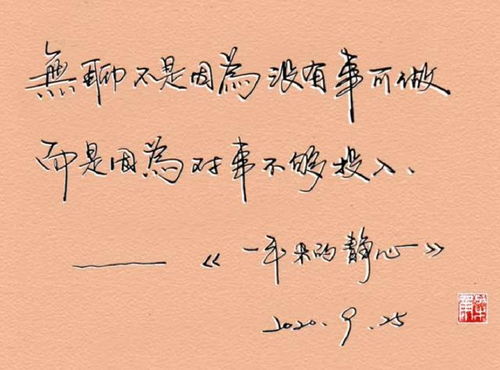 無聊不是因為没有事可做
而是因為对事不够投入.
——《一年来的静心》
2020.9.25